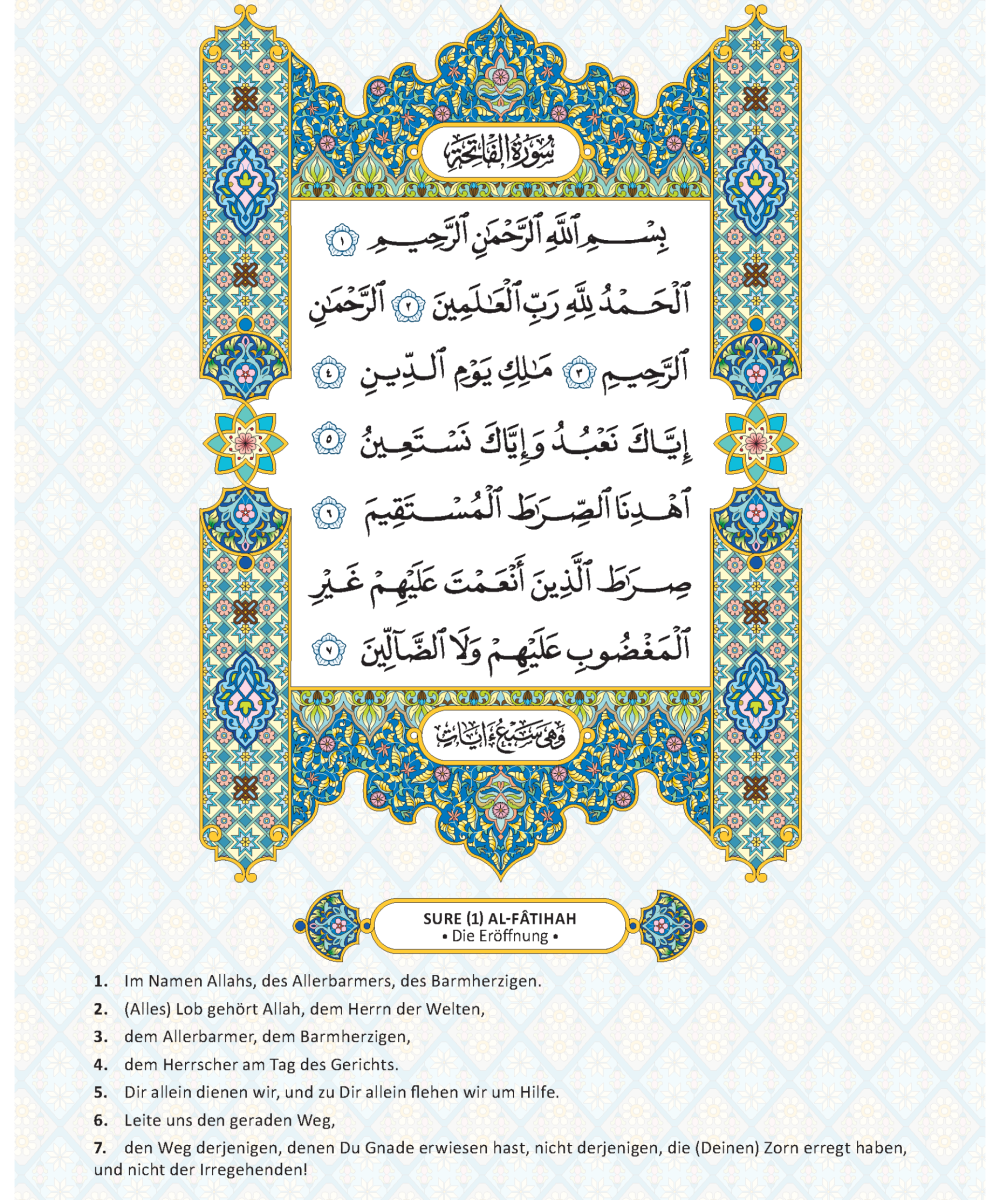 سُورَةُ الْفَاتِحَةِ
بِسْمِ ٱللَّهِ ٱلرَّحْمَٰنِ ٱلرَّحِيمِ ١
ٱلْحَمْدُ لِلَّهِ رَبِّ ٱلْعَٰلَمِينَ ٢ ٱلرَّحْمَٰنِ
ٱلرَّحِيمِ ٣ مَٰلِكِ يَوْمِ ٱلدِّينِ ٤
إِيَّاكَ نَعْبُدُ وَإِيَّاكَ نَسْتَعِينُ ٥
ٱهْدِنَا ٱلصِّرَٰطَ ٱلْمُسْتَقِيمَ ٦
صِرَٰطَ ٱلَّذِينَ أَنْعَمْتَ عَلَيْهِمْ غَيْرِ
ٱلْمَغْضُوبِ عَلَيْهِمْ وَلَا ٱلضَّآلِّينَ ٧
وَهِيَ سَبْعُ ءَايَاتٍ
SURE (1) AL-FÂTIHAH
• Die Eröffnung •
1. Im Namen Allahs, des Allerbarmers, des Barmherzigen.
2. (Alles) Lob gehört Allah, dem Herrn der Welten,
3. dem Allerbarmer, dem Barmherzigen,
4. dem Herrscher am Tag des Gerichts.
5. Dir allein dienen wir, und zu Dir allein flehen wir um Hilfe.
6. Leite uns den geraden Weg,
7. den Weg derjenigen, denen Du Gnade erwiesen hast, nicht derjenigen, die (Deinen) Zorn erregt haben,
und nicht der Irregehenden!